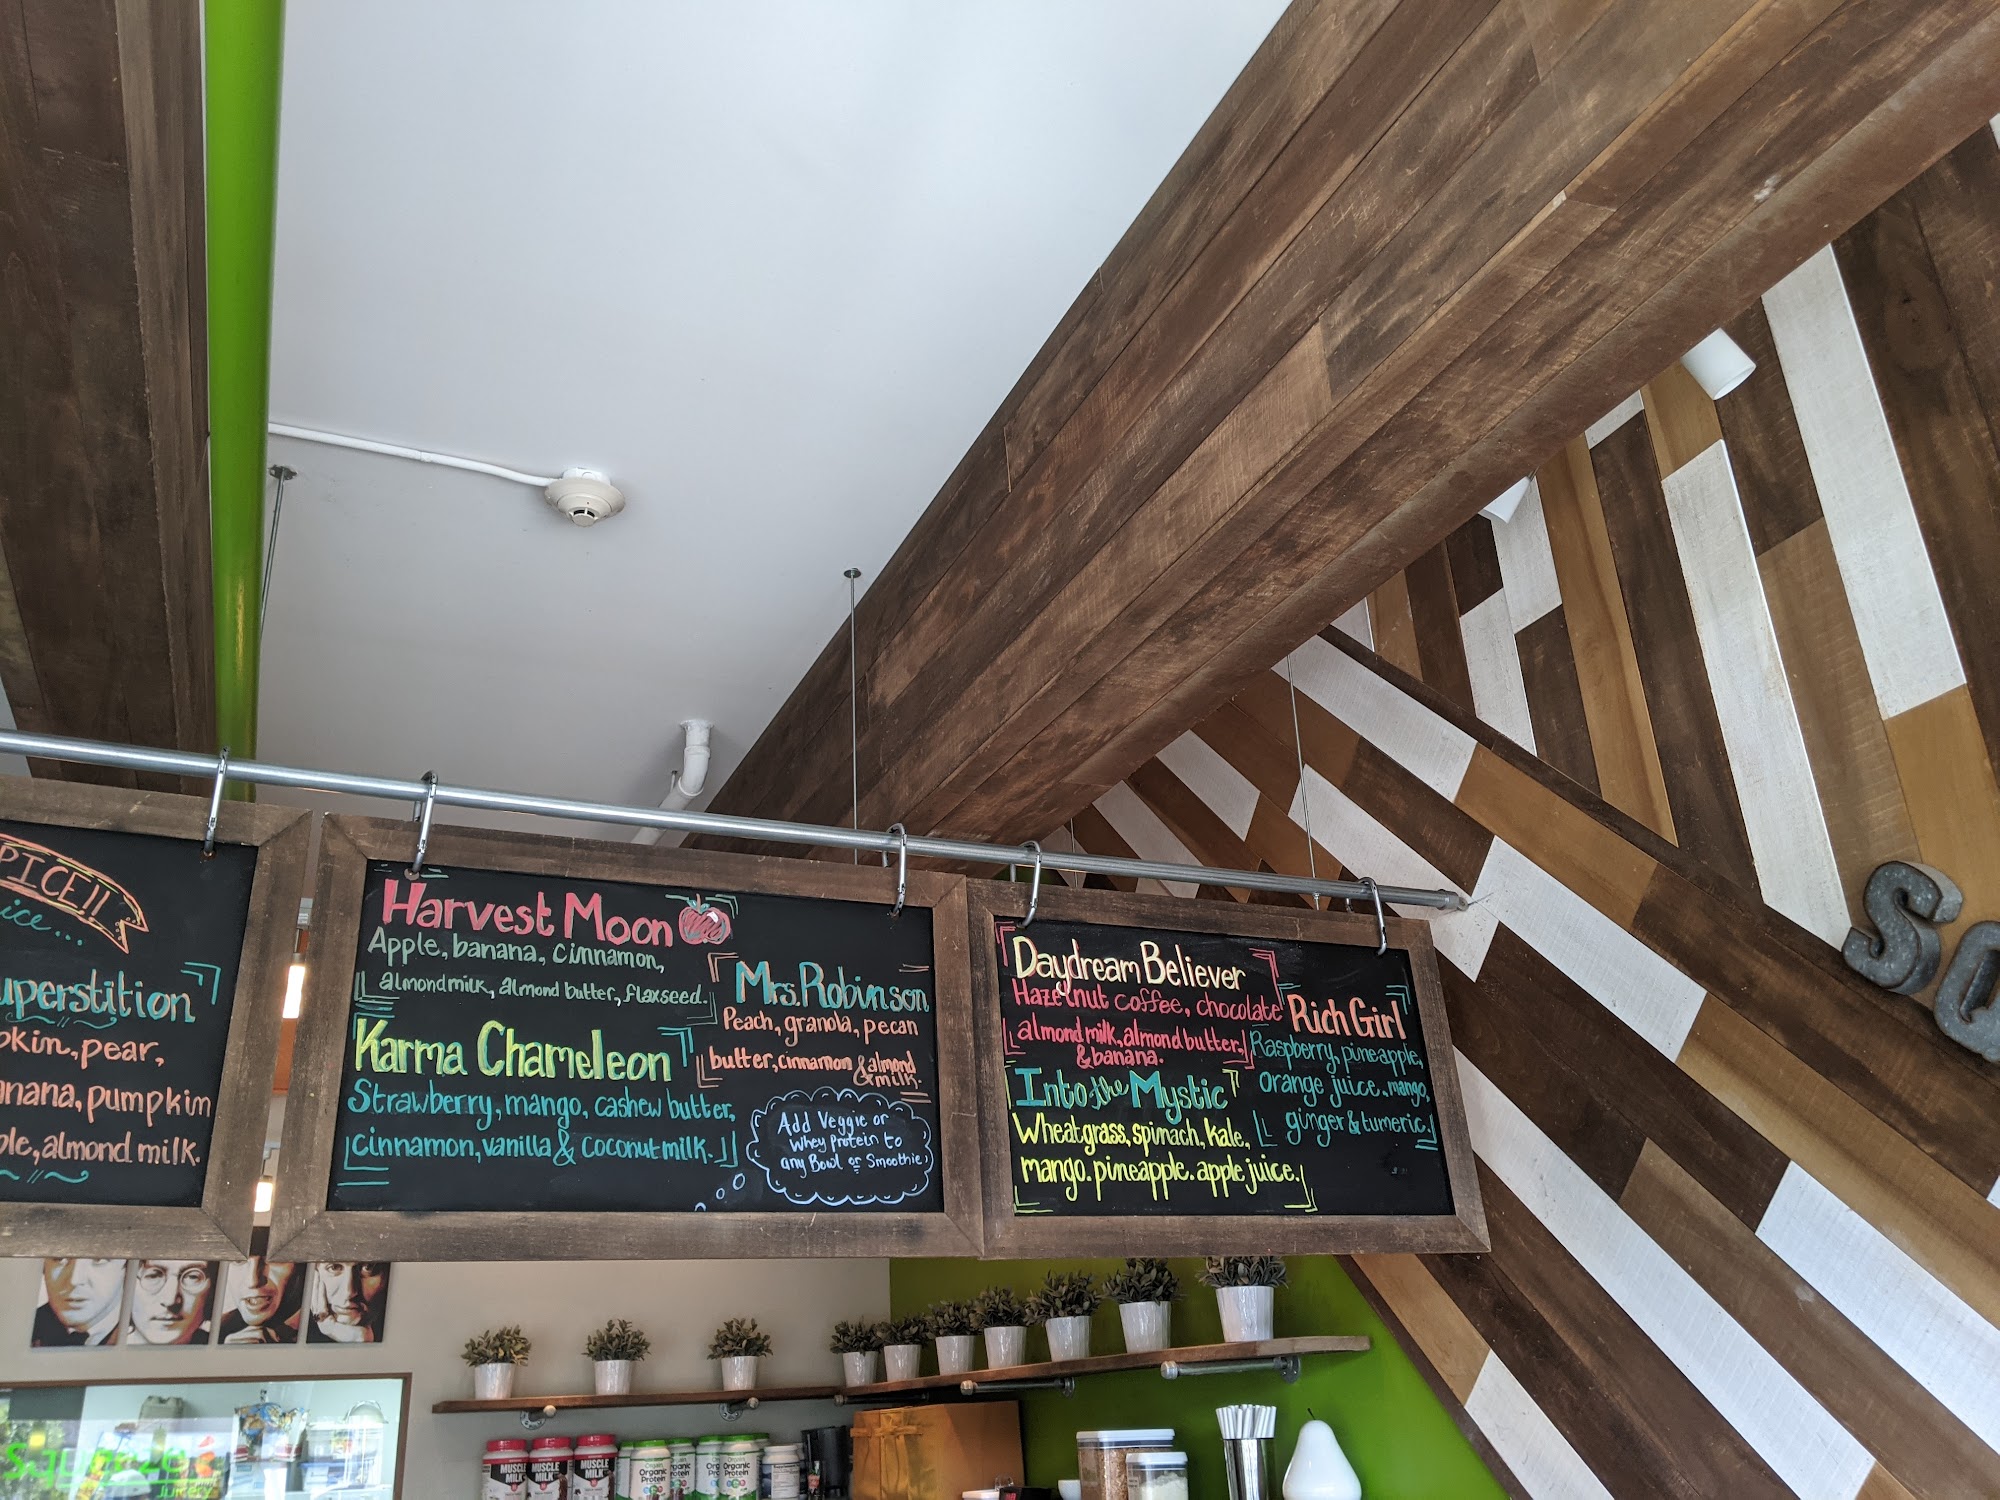 PICE!!
ice...
uperstition
pkin, pear,
anana, pumpkin
ple, almond milk.
Harvest Moon
Apple, banana, cinnamon,
almond milk, almond butter, flaxseed.
Karma Chameleon
Strawberry, mango, cashew butter,
cinnamon, vanilla & coconut milk.
Mrs. Robinson
Peach, granola, pecan
butter, cinnamon & almond
milk.
Add Veggie or
whey protein to
any Bowl or Smoothie
Daydream Believer
Hazelnut coffee, chocolate
almond milk, almond butter,
& banana.
Into the Mystic
Wheatgrass, spinach, kale,
mango. pineapple. apple juice.
Rich Girl
Raspberry, pineapple,
orange juice. mango,
ginger & tumeric.
SQ
Squeeze
Juicery
MUSCLE
MILK
MUSCLE
MILK
MUSCLE
MILK
Organic
Protein
Organic
Protein